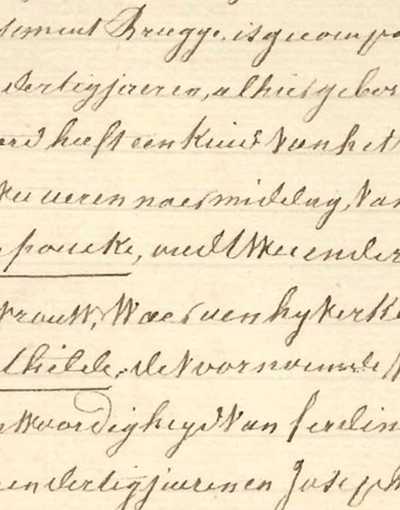 sement Brugge, is gecompa
dertig jaeren, alhier gebor
erd heeft een Kind van het
wee ueren naermiddag, van
poucke, oudt twee ender
vrouw, Waervan hy verkl
thilde, de voornoemde
nwoordigheyd van ferdin
endertig jaeren en Joseph